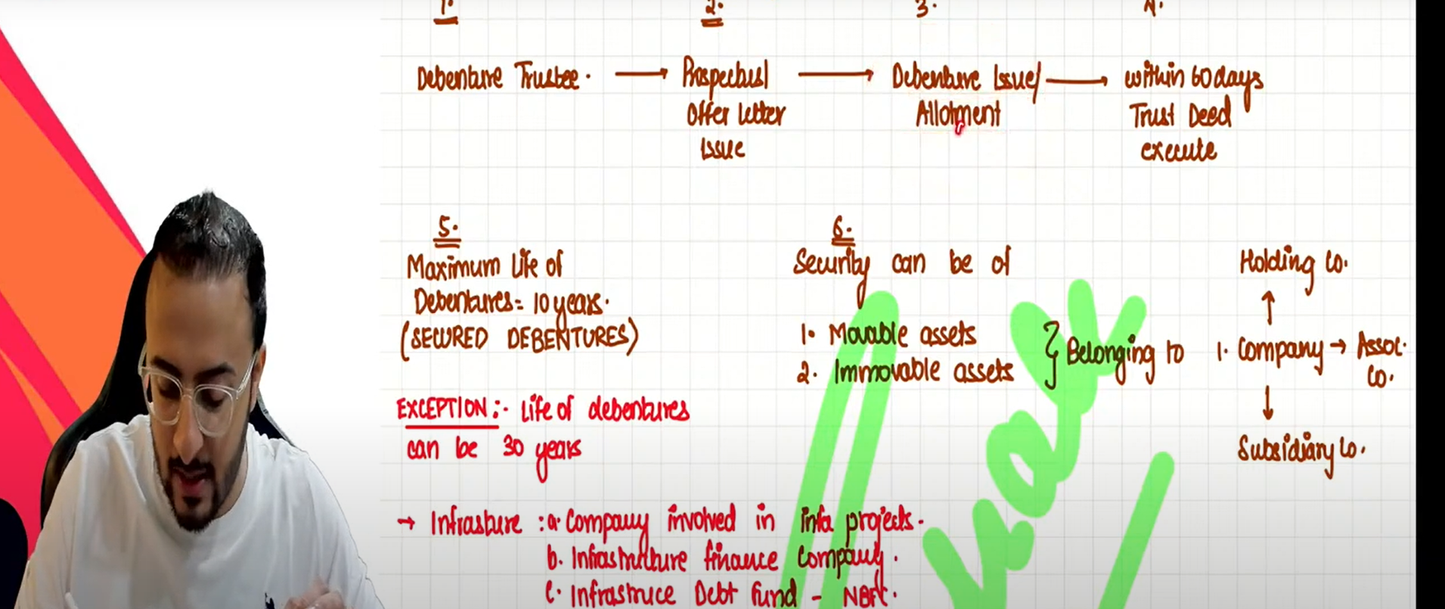 1. 2. 3. 4.
Debenture Trustee. → Prospectus → Debenture Issue/ → within 60 days
Offer letter Allotment Trust Deed
Issue execute
5.
Maximum life of
Debentures = 10 years.
(SECURED DEBENTURES)
EXCEPTION:- Life of debentures
can be 30 years
→ Infrasture : a. Company involved in infa projects.
b. Infrastructure finance Company.
c. Infrastruce Debt fund - NBFC.
6.
Security can be of
1. Movable assets
2. Immovable assets
} Belonging to
Holding Co.
↑
1. Company → Assoc.
Co.
↓
Subsidiary Co.